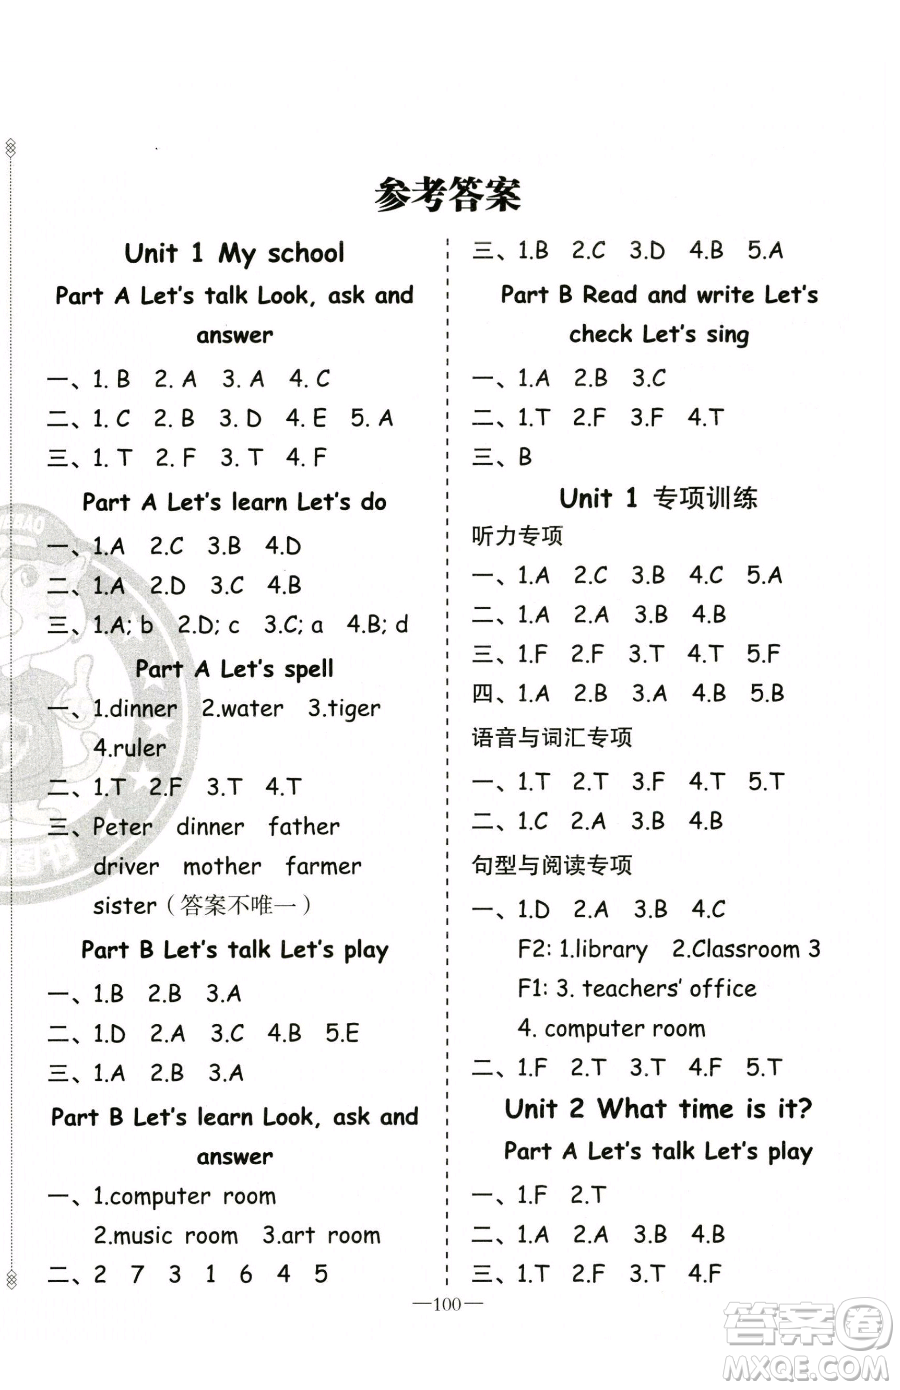 参考答案
Unit 1 My school
Part A Let's talk Look, ask and
answer
一、1. B 2. A 3. A 4. C
二、1. C 2. B 3. D 4. E 5. A
三、1. T 2. F 3. T 4. F
Part A Let's learn Let's do
一、1.A 2.C 3.B 4.D
二、1.A 2.D 3.C 4.B
三、1.A; b 2.D; c 3.C; a 4.B; d
Part A Let's spell
一、1.dinner 2.water 3.tiger
4.ruler
二、1.T 2.F 3.T 4.T
三、Peter dinner father
driver mother farmer
sister（答案不唯一）
Part B Let's talk Let's play
一、1.B 2.B 3.A
二、1.D 2.A 3.C 4.B 5.E
三、1.A 2.B 3.A
Part B Let's learn Look, ask and
answer
一、1.computer room
2.music room 3.art room
二、2 7 3 1 6 4 5
三、1.B 2.C 3.D 4.B 5.A
Part B Read and write Let's
check Let's sing
一、1.A 2.B 3.C
二、1.T 2.F 3.F 4.T
三、B
Unit 1 专项训练
听力专项
一、1.A 2.C 3.B 4.C 5.A
二、1.A 2.A 3.B 4.B
三、1.F 2.F 3.T 4.T 5.F
四、1.A 2.B 3.A 4.B 5.B
语音与词汇专项
一、1.T 2.T 3.F 4.T 5.T
二、1.C 2.A 3.B 4.B
句型与阅读专项
一、1.D 2.A 3.B 4.C
F2: 1.library 2.Classroom 3
F1: 3. teachers' office
4. computer room
二、1.F 2.T 3.T 4.F 5.T
Unit 2 What time is it?
Part A Let's talk Let's play
一、1.F 2.T
二、1.A 2.A 3.B 4.B
三、1.T 2.F 3.T 4.F
—100—
答案圈
MXQE.COM